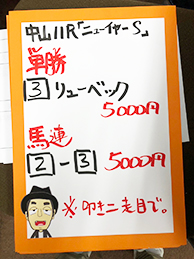 中山11R「ニューイヤーS」
単勝
3 リューベック
5000円
馬連
2-3 5000円
※叩き二走目で。